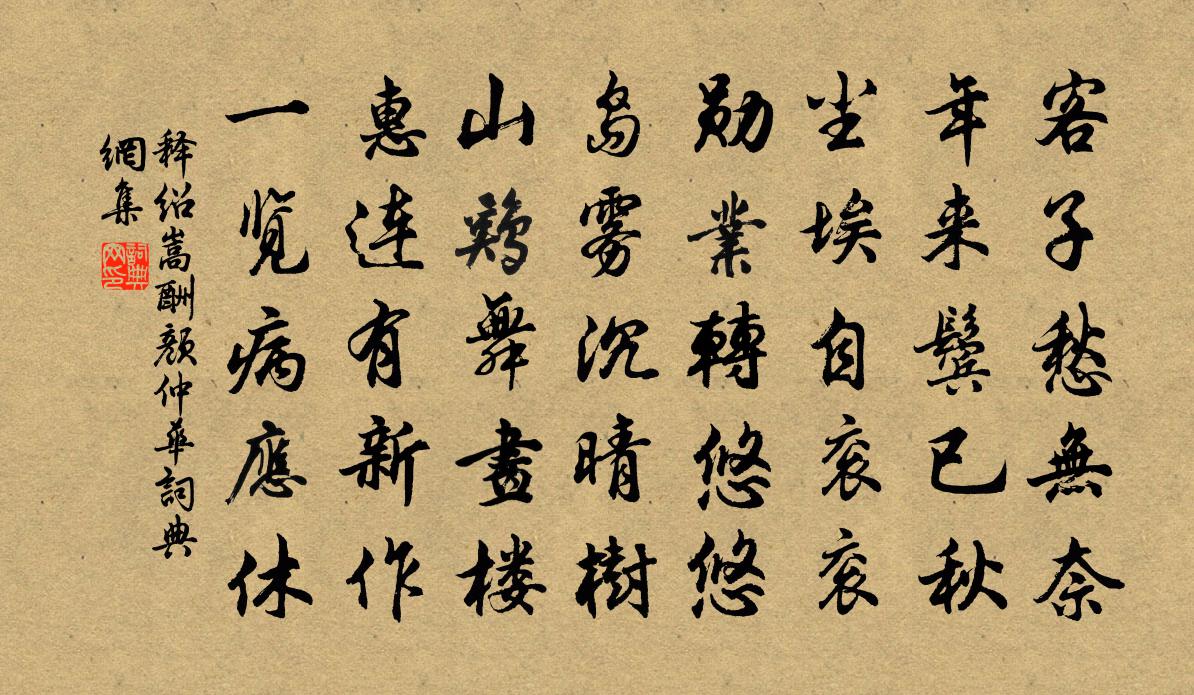 客子愁無奈
年来鬓已秋
尘埃自衮衮
勋業轉悠悠
岛雾沉晴樹
山鷄舞畫楼
惠连有新作
一览病應休
释绍嵩酬颜仲华詞典
網集
詞典网印